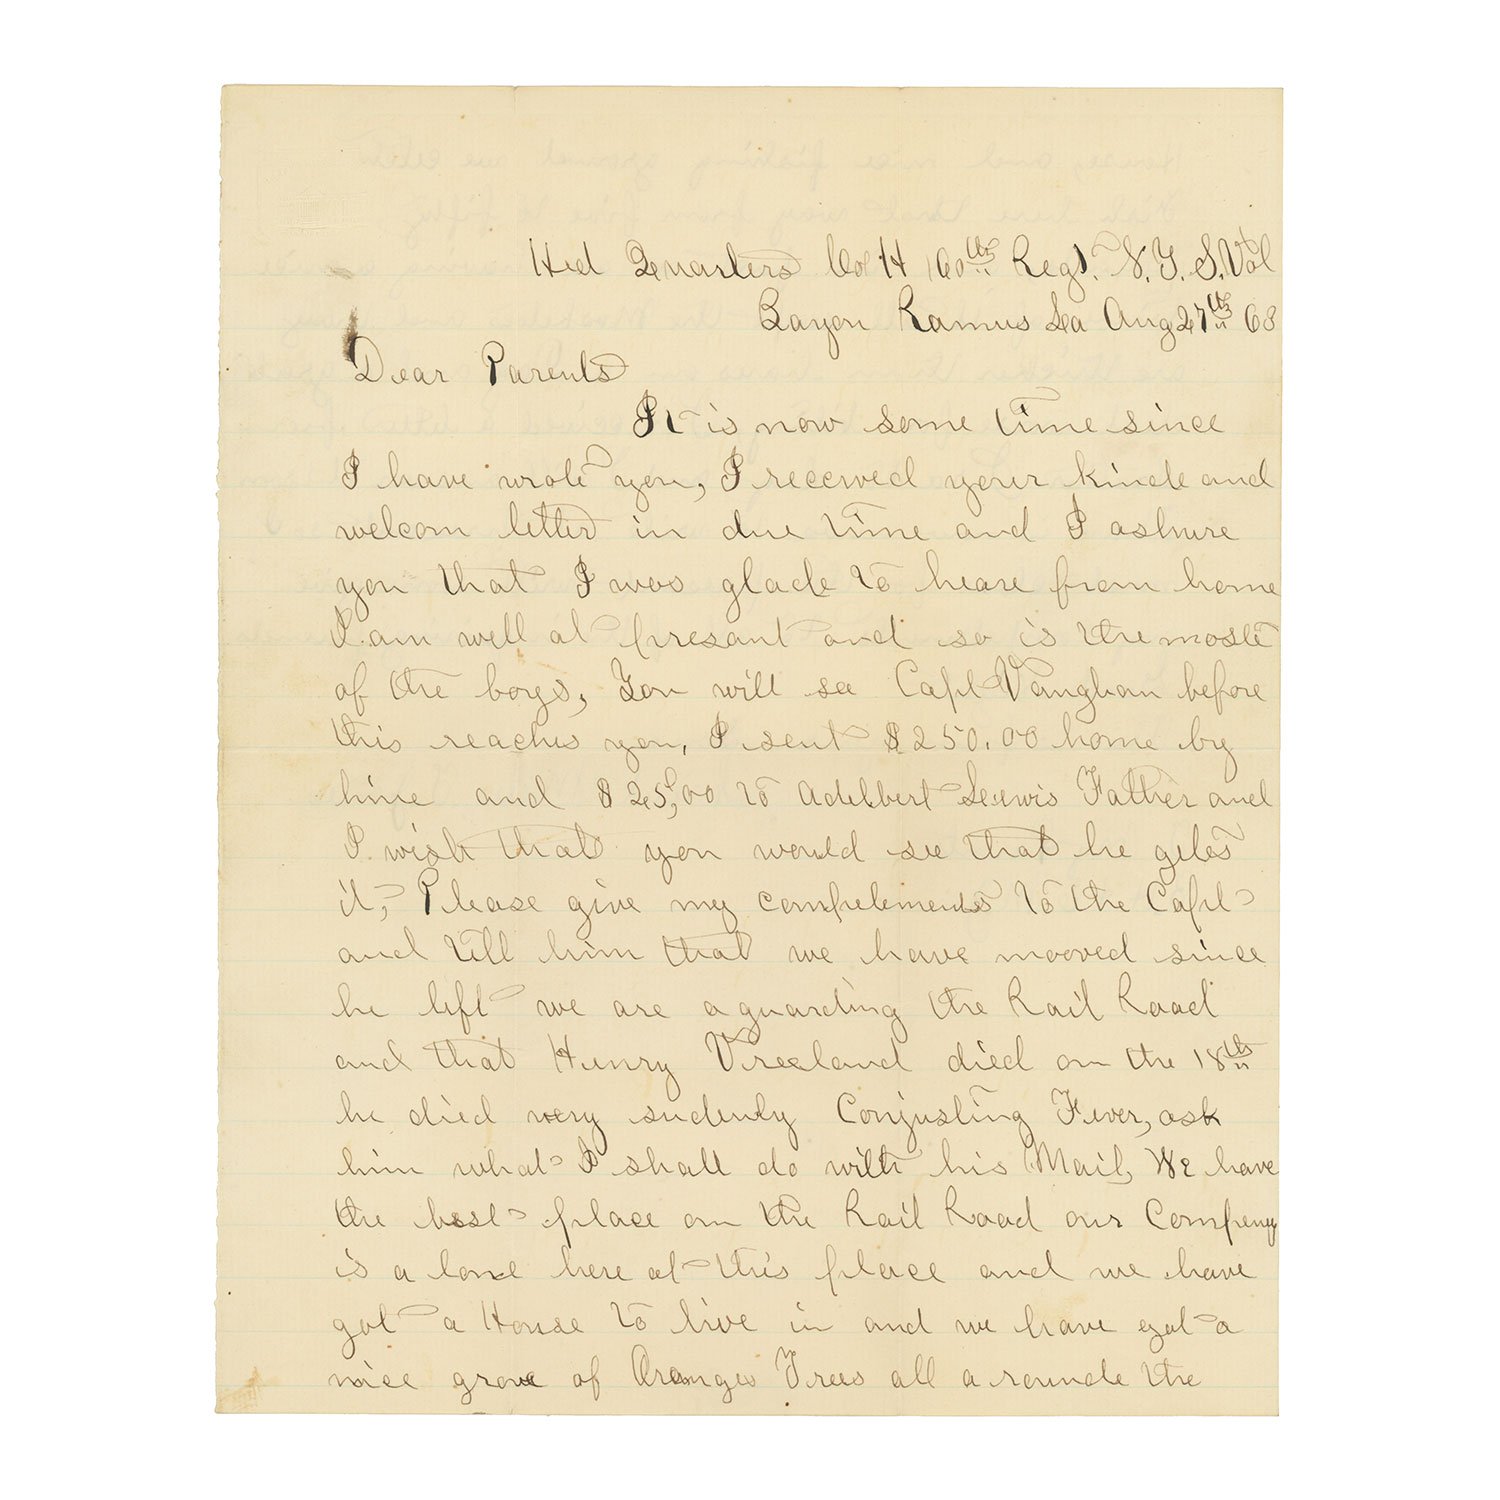 Hed Quarters Co H 160th Regt. N.Y.S. Vol
Bayou Ramus La Aug 27th 63
Dear Parents
It is now some time since
I have wrote you, I receeved your kinde and
welcom letter in due time and I ashure
you that I was glade to heare from home
I am well at presant and so is the moste
of the boys, You will see Capt Vaughan before
this reaches you, I sent $250.00 home by
hime and $25,00 to Adelbert Leuwis Father and
I wish that you would see that he getes
it, Please give my compelements to the Capt
and tell him that we have mooved since
he left we are a guarding the Rail Road
and that Henry Vreeland died on the 18th
he died very sudenly Conjusting Fever, ask
him what I shall do with his Mail, We have
the best place on the Rail Road our Compeny
is a lone here at this place and we have
got a House to live in and we have got a
nice grove of Oranges Trees all a rounde the